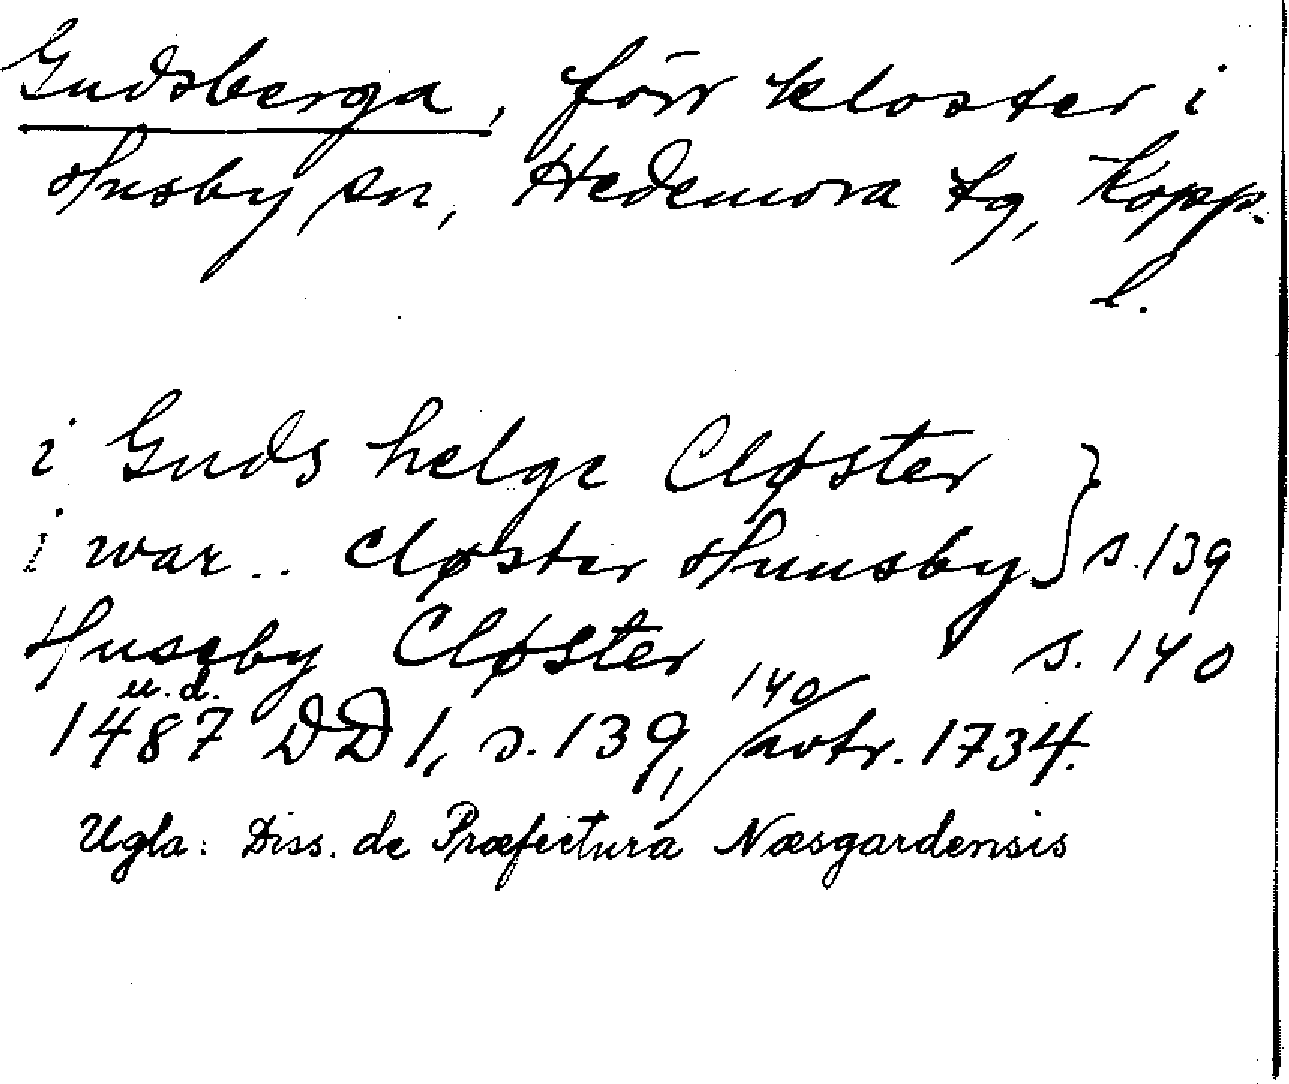 Gudsberga, förr kloster i
Husby sn, Hedemora tg, Kopp.
l.
i Guds helge Cløster
i war.. Cløster Huusby } s. 139
Huseby Cløster s. 140
u.d.
1487 DD 1, s. 139, 140 avtr. 1734.
Ugla: Diss. de Præfectura Næsgardensis